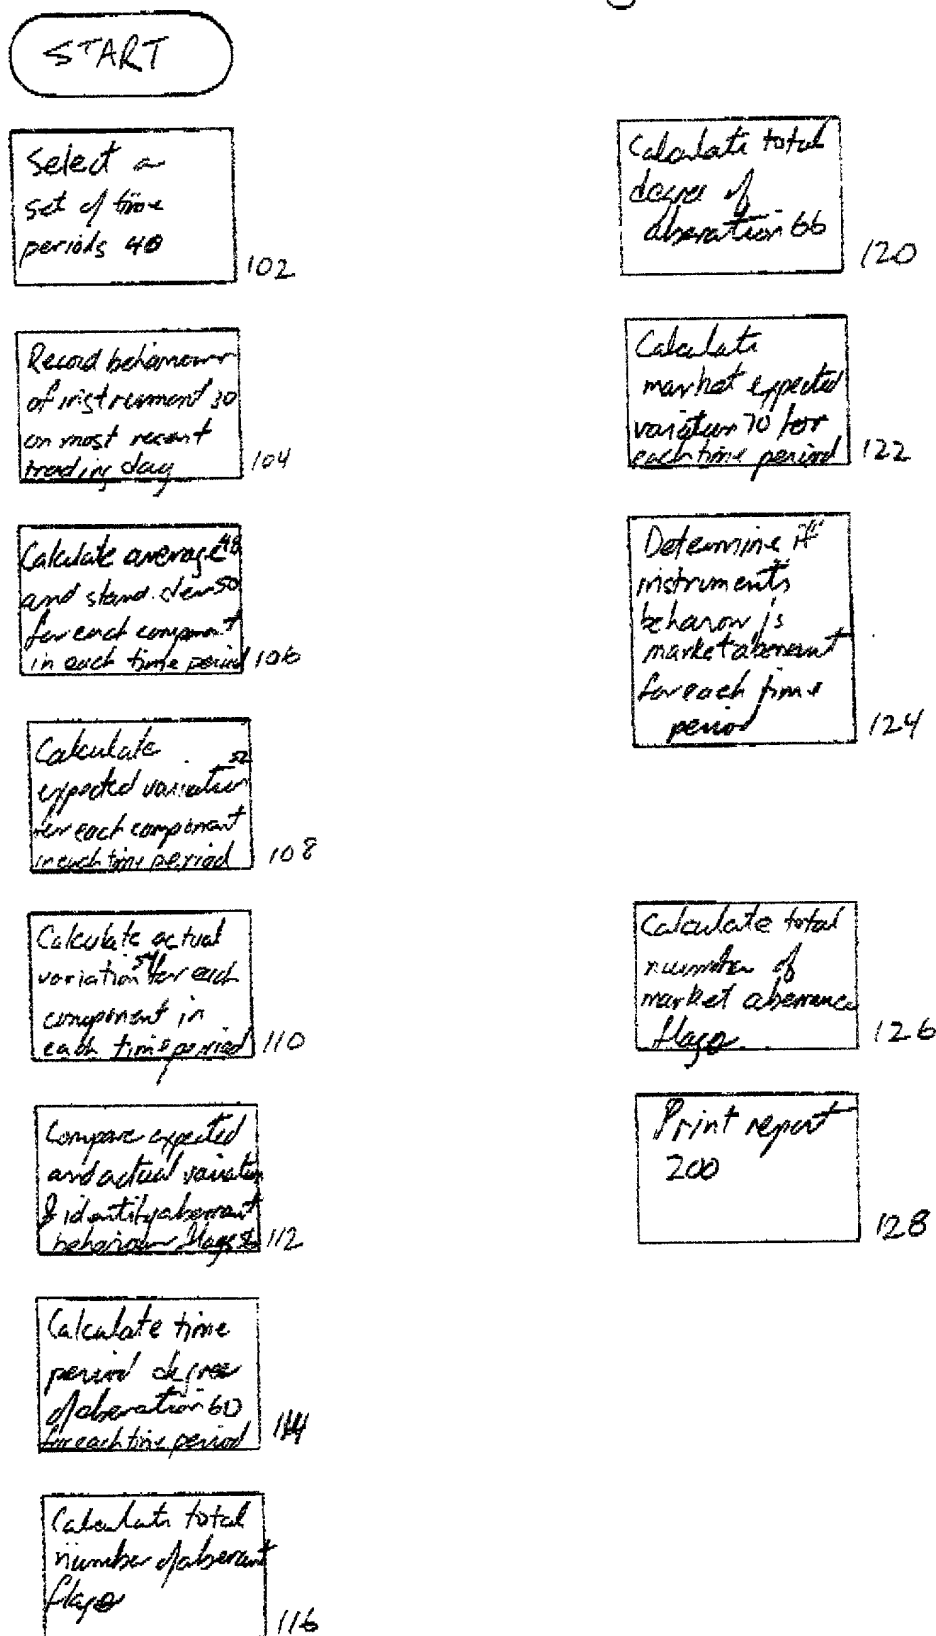 START
Select a
set of time
periods 40
102
Record behaviour
of instrument 30
on most recent
trading day
104
Calculate average 48
and stand. dev 50
for each component
in each time period
106
Calculate
expected variation 52
for each component
in each time period
108
Calculate actual
variation 54 for each
component in
each time period
110
Compare expected
and actual variation
& identify aberrant
behaviour flags
112
Calculate time
period degree
of aberation 60
for each time period
114
Calculate total
number of aberant
flags
116
Calculate total
degree of
aberation 66
120
Calculate
market expected
variation 70 for
each time period
122
Determine if
instruments
behavour is
market aberrant
for each time
period
124
Calculate total
number of
market aberrance
flags
126
Print report
200
128